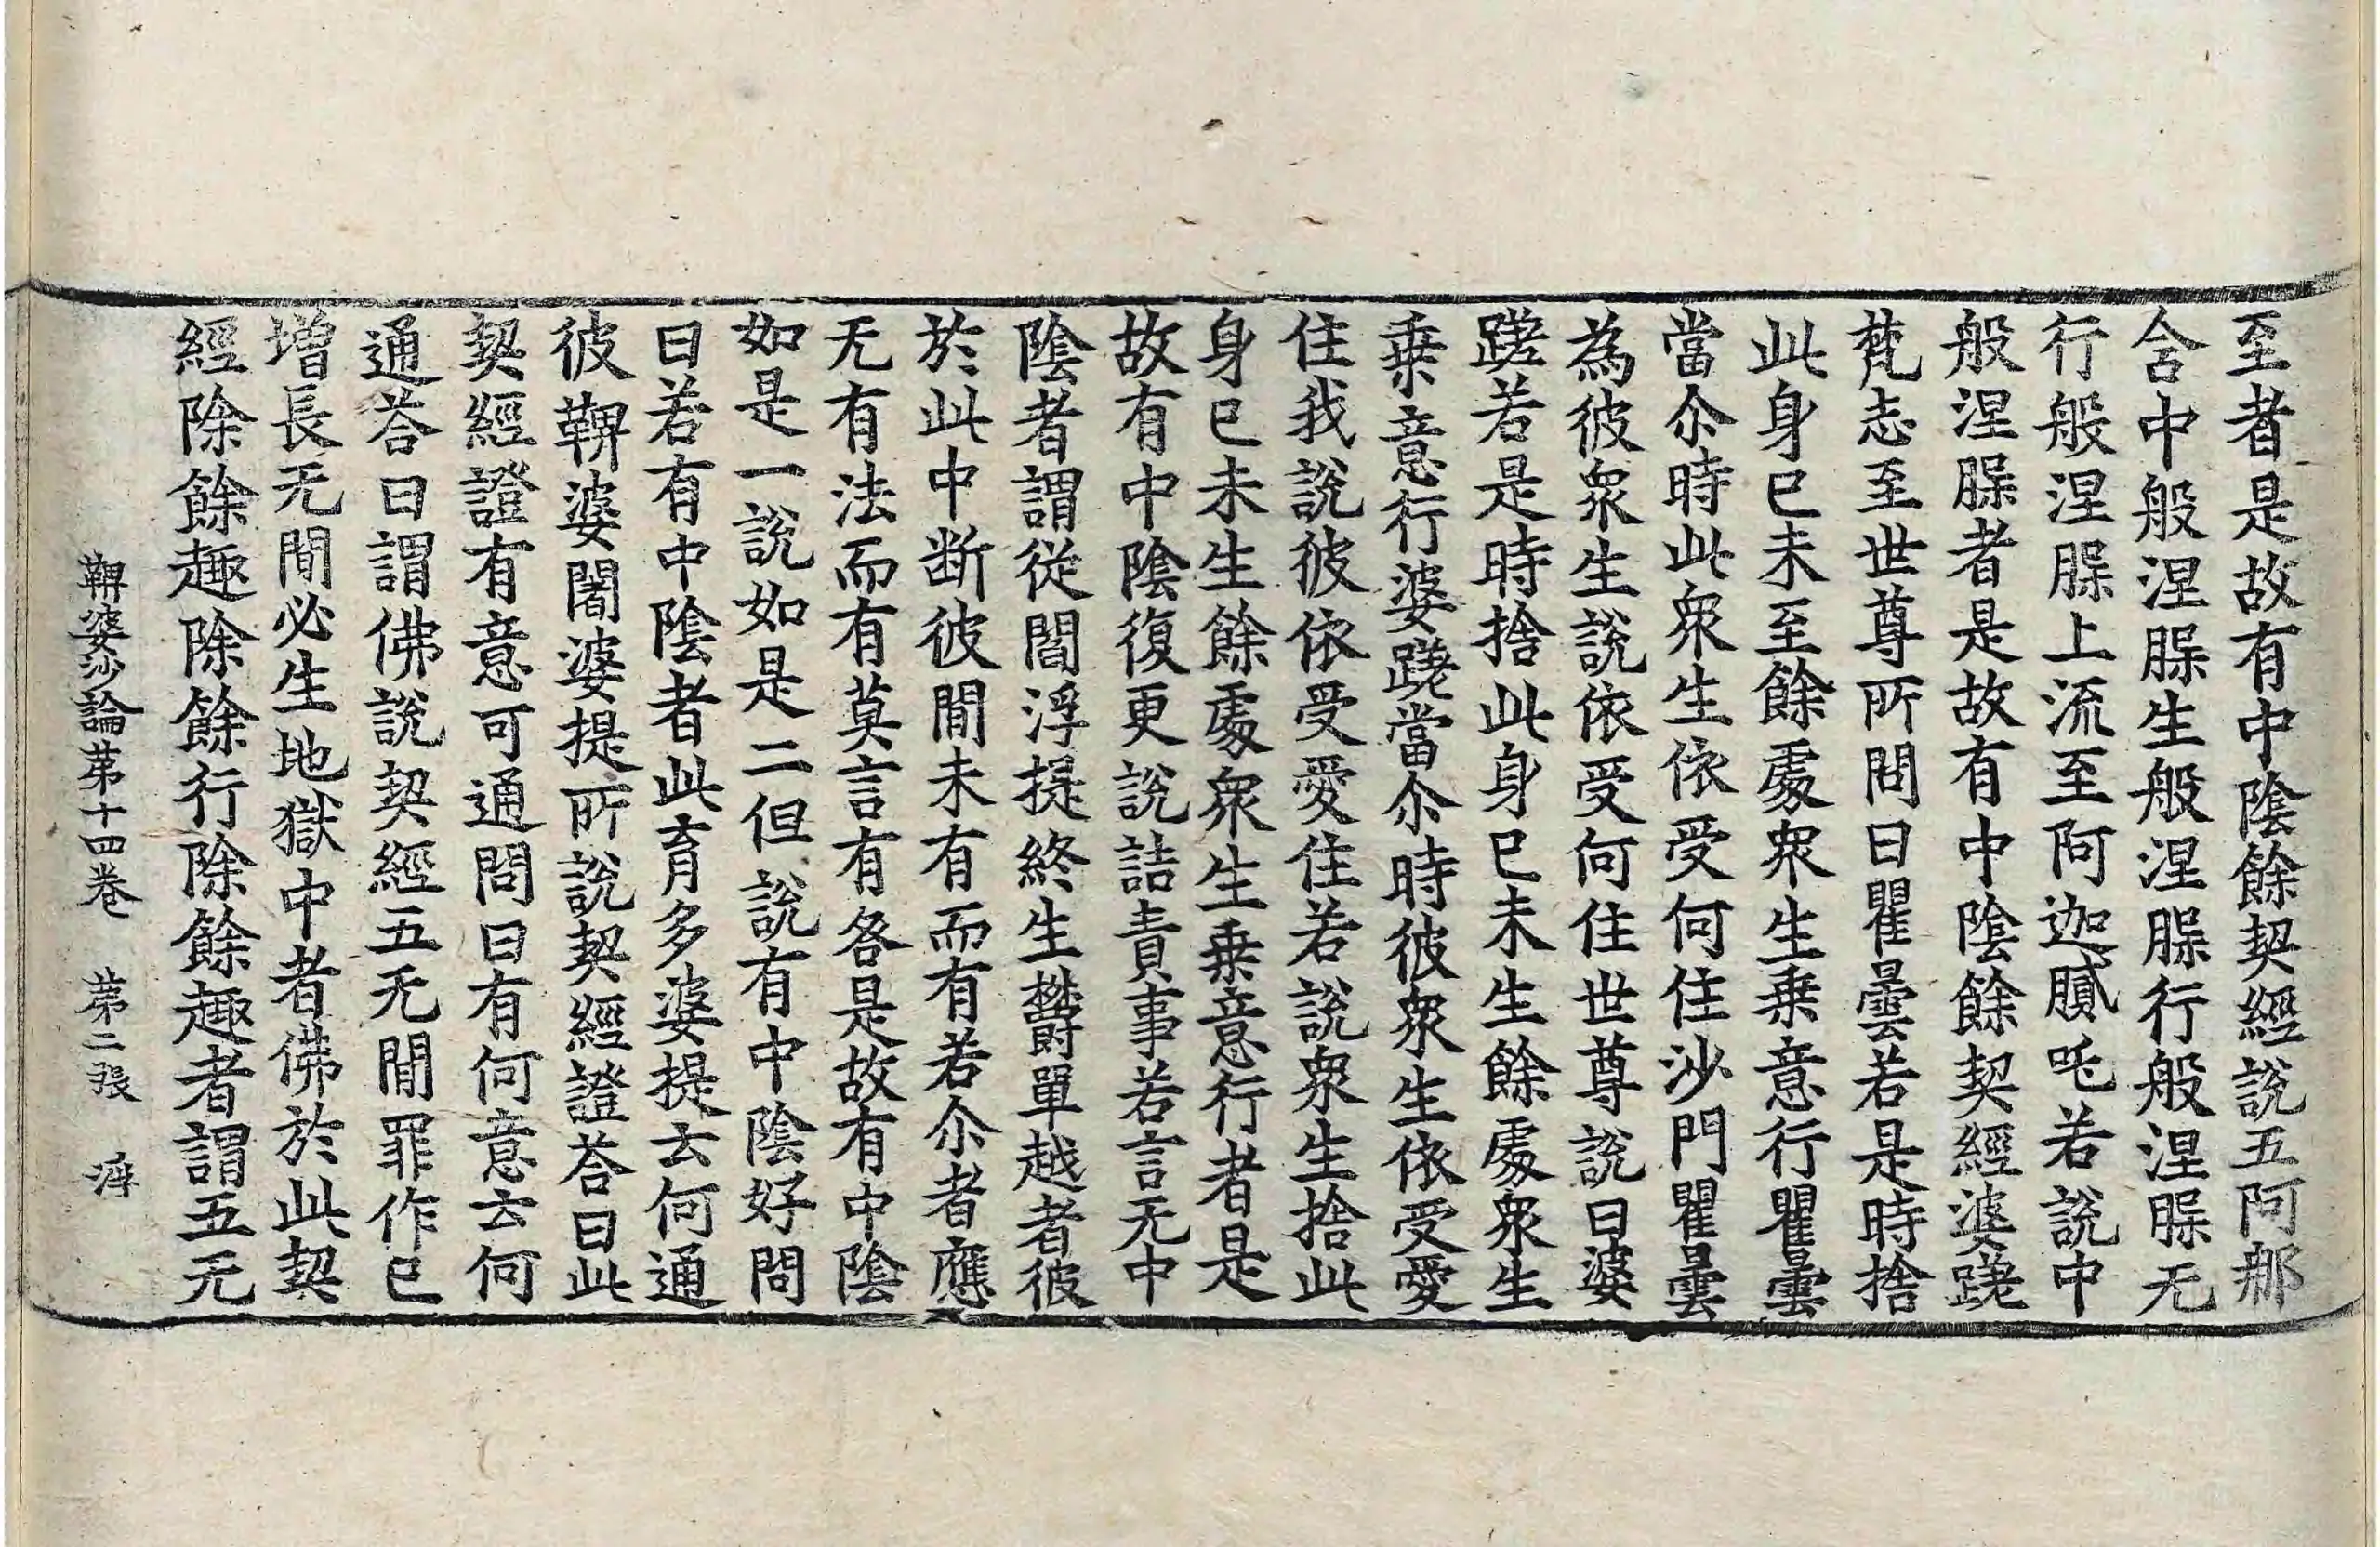 至者是故有中陰餘契經說五阿那
含中般涅脲生般涅脲行般涅脲无
行般涅脲上流至阿迦膩吒若說中
般涅脲者是故有中陰餘契經婆蹉
梵志至世尊所問曰瞿曇若是時捨
此身已未至餘處衆生乗意行瞿曇
當尒時此衆生依受何住沙門瞿曇
為彼衆生說依受何住世尊說曰婆
蹉若是時捨此身已未生餘處衆生
乗意行婆蹉當尒時彼衆生依受愛
住我說彼依受愛住若說衆生捨此
身已未生餘處衆生乗意行者是
故有中陰復更說詰責事若言无中
陰者謂從閻浮提終生欝單越者彼
於此中断彼間未有而有若尒者應
无有法而有莫言有各是故有中陰
如是一說如是二但說有中陰好問
曰若有中陰者此育多婆提去何通
彼鞞婆闍婆提所說契經證荅曰此
契經證有意可通問曰有何意去何
通荅曰謂佛說契經五无間罪作已
增長无間必生地獄中者佛於此契
經除餘趣除餘行除餘趣者謂五无
鞞婆沙論苐十四卷 苐二張